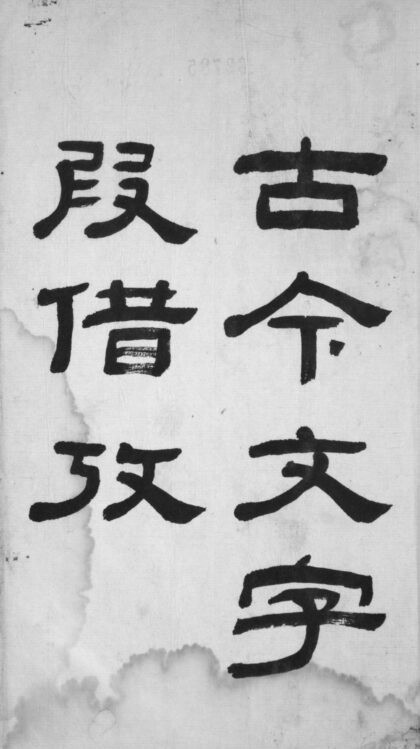 古今文字
叚借攷